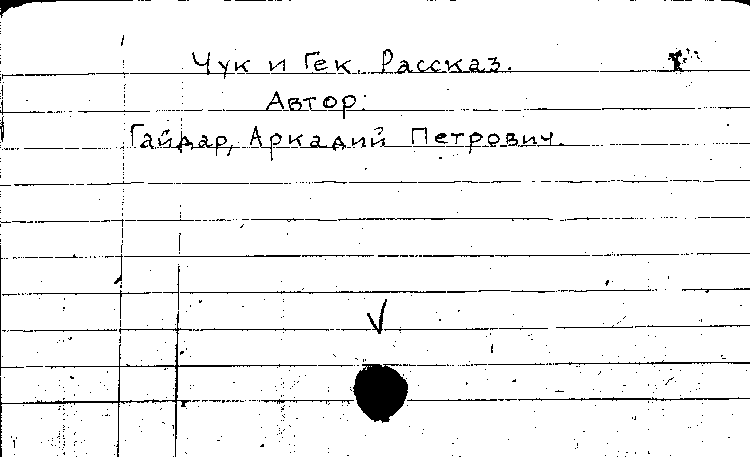 Чук и Гек. Рассказ.
Автор:
Гайдар, Аркадий Петрович.